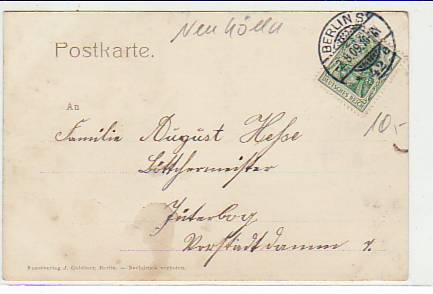 Neukölln
Postkarte.
BERLIN S.
9.09.10-11V.
42 d
DEUTSCHES REICH
10,-
An
Familie August Hesse
Böttchermeister
Jüterbog
Vorstadtdamm
Kunstverlag J. Goldiner, Berlin. — Nachdruck verboten.